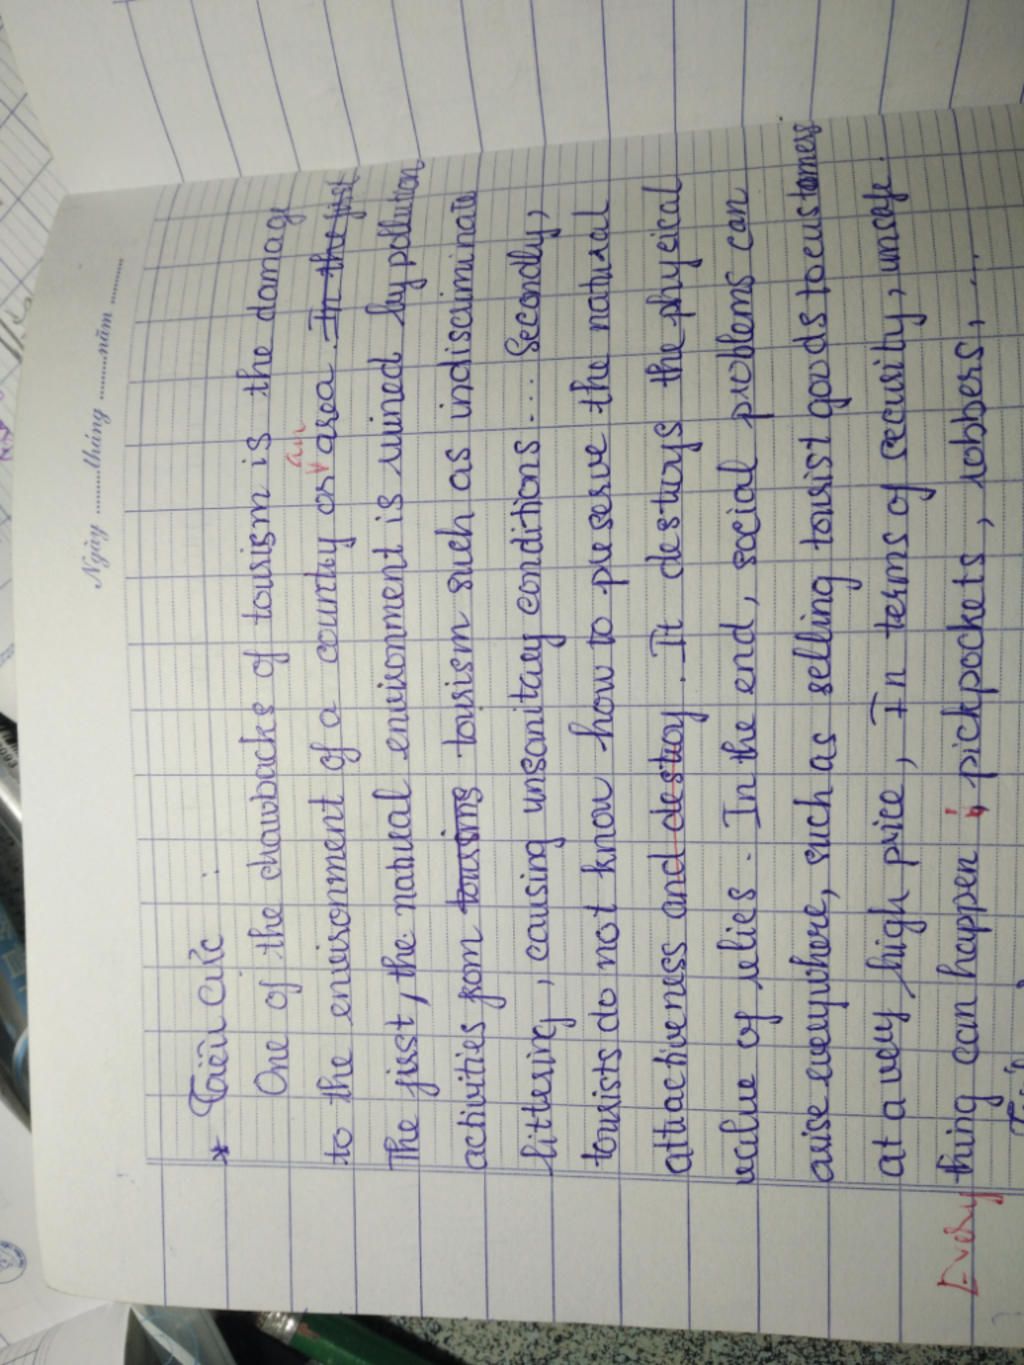 Ngày ........ tháng ........ năm ........
* Tiêu cực :
One of the drawbacks of tourism is the damage
to the environment of a country or an area. In the first
The first, the natural environment is ruined by pollution
activities from touring tourism such as indiscriminate
littering, causing unsanitary conditions.... Secondly,
tourists do not know how to preserve the natural
attractiveness and destroy. It destroys the physical
value of relics. In the end, social problems can
arise everywhere, such as selling tourist goods to customers
at a very high price, In terms of security, unsafe.
Every thing can happen : pickpockets, robbers, ...